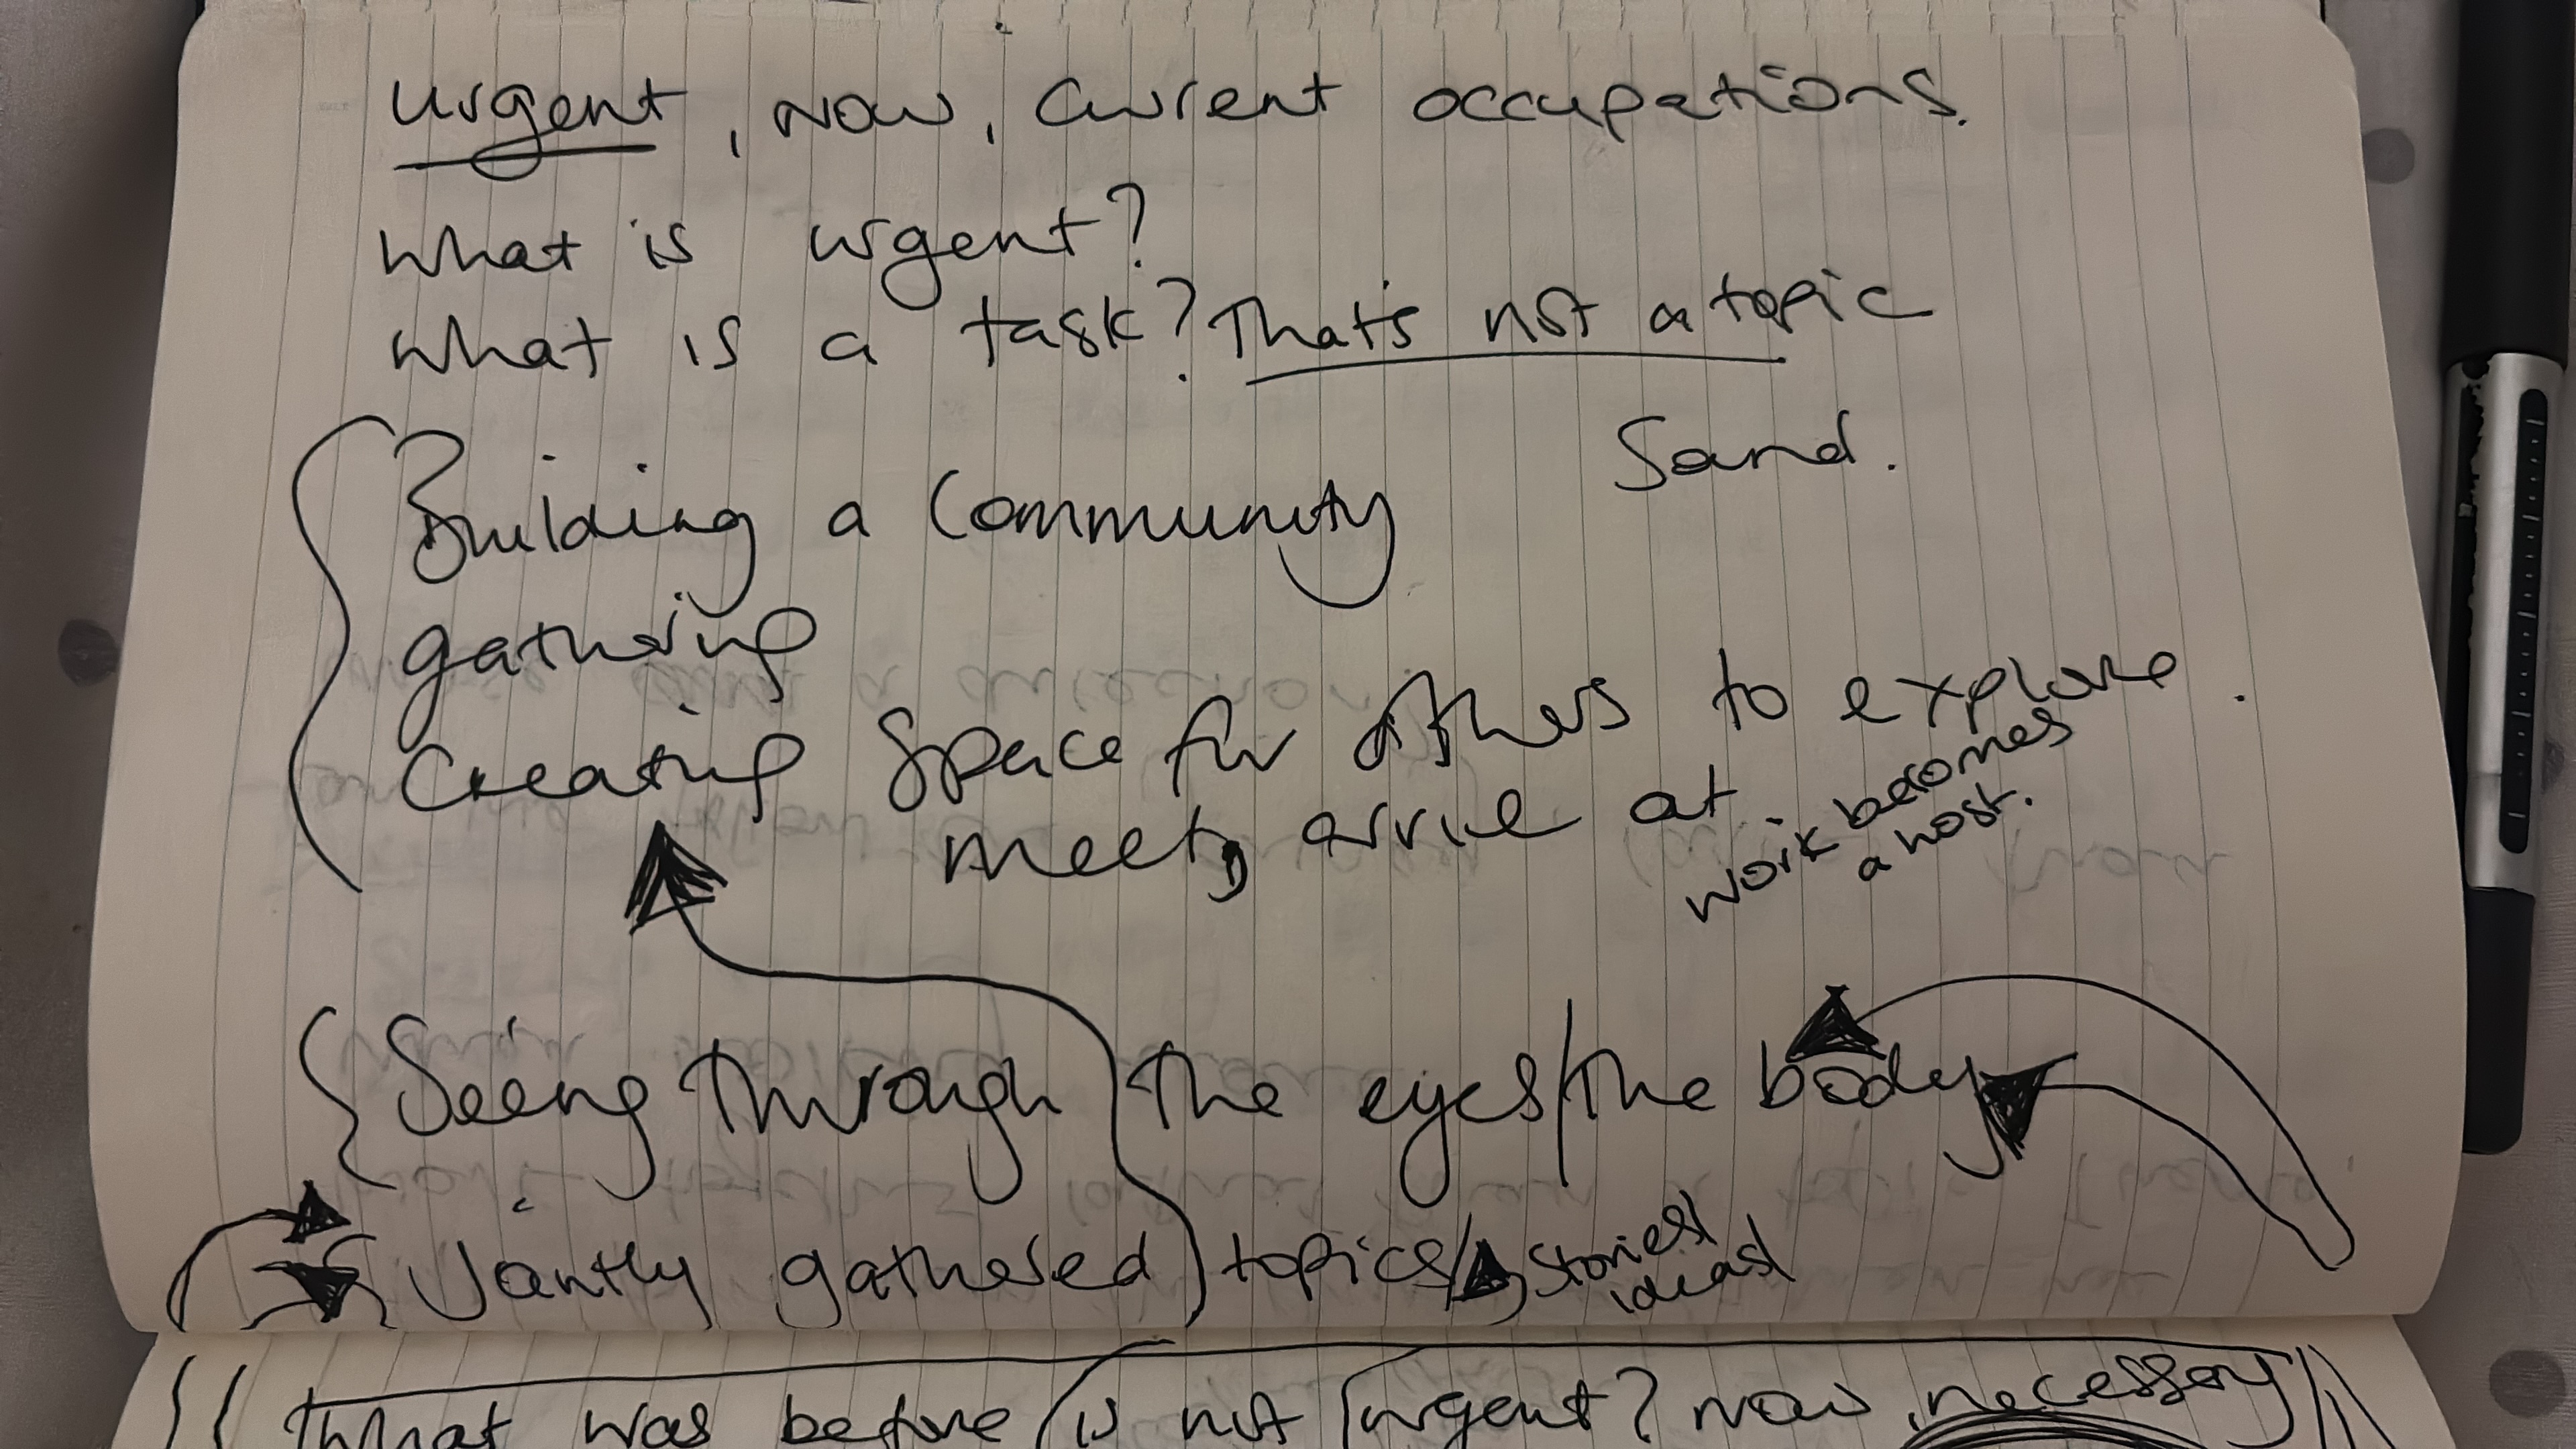 urgent, now, current occupations.
what is urgent?
what is a task? That's not a topic
Sand.
Building a Community
gathering
Creating Space for others to explore.
meet, arrive at
work becomes
a host.
Seeing through the eyes/the body
Jointly gathered topics/stories/
ideas/
What was before is not urgent? now, necessary